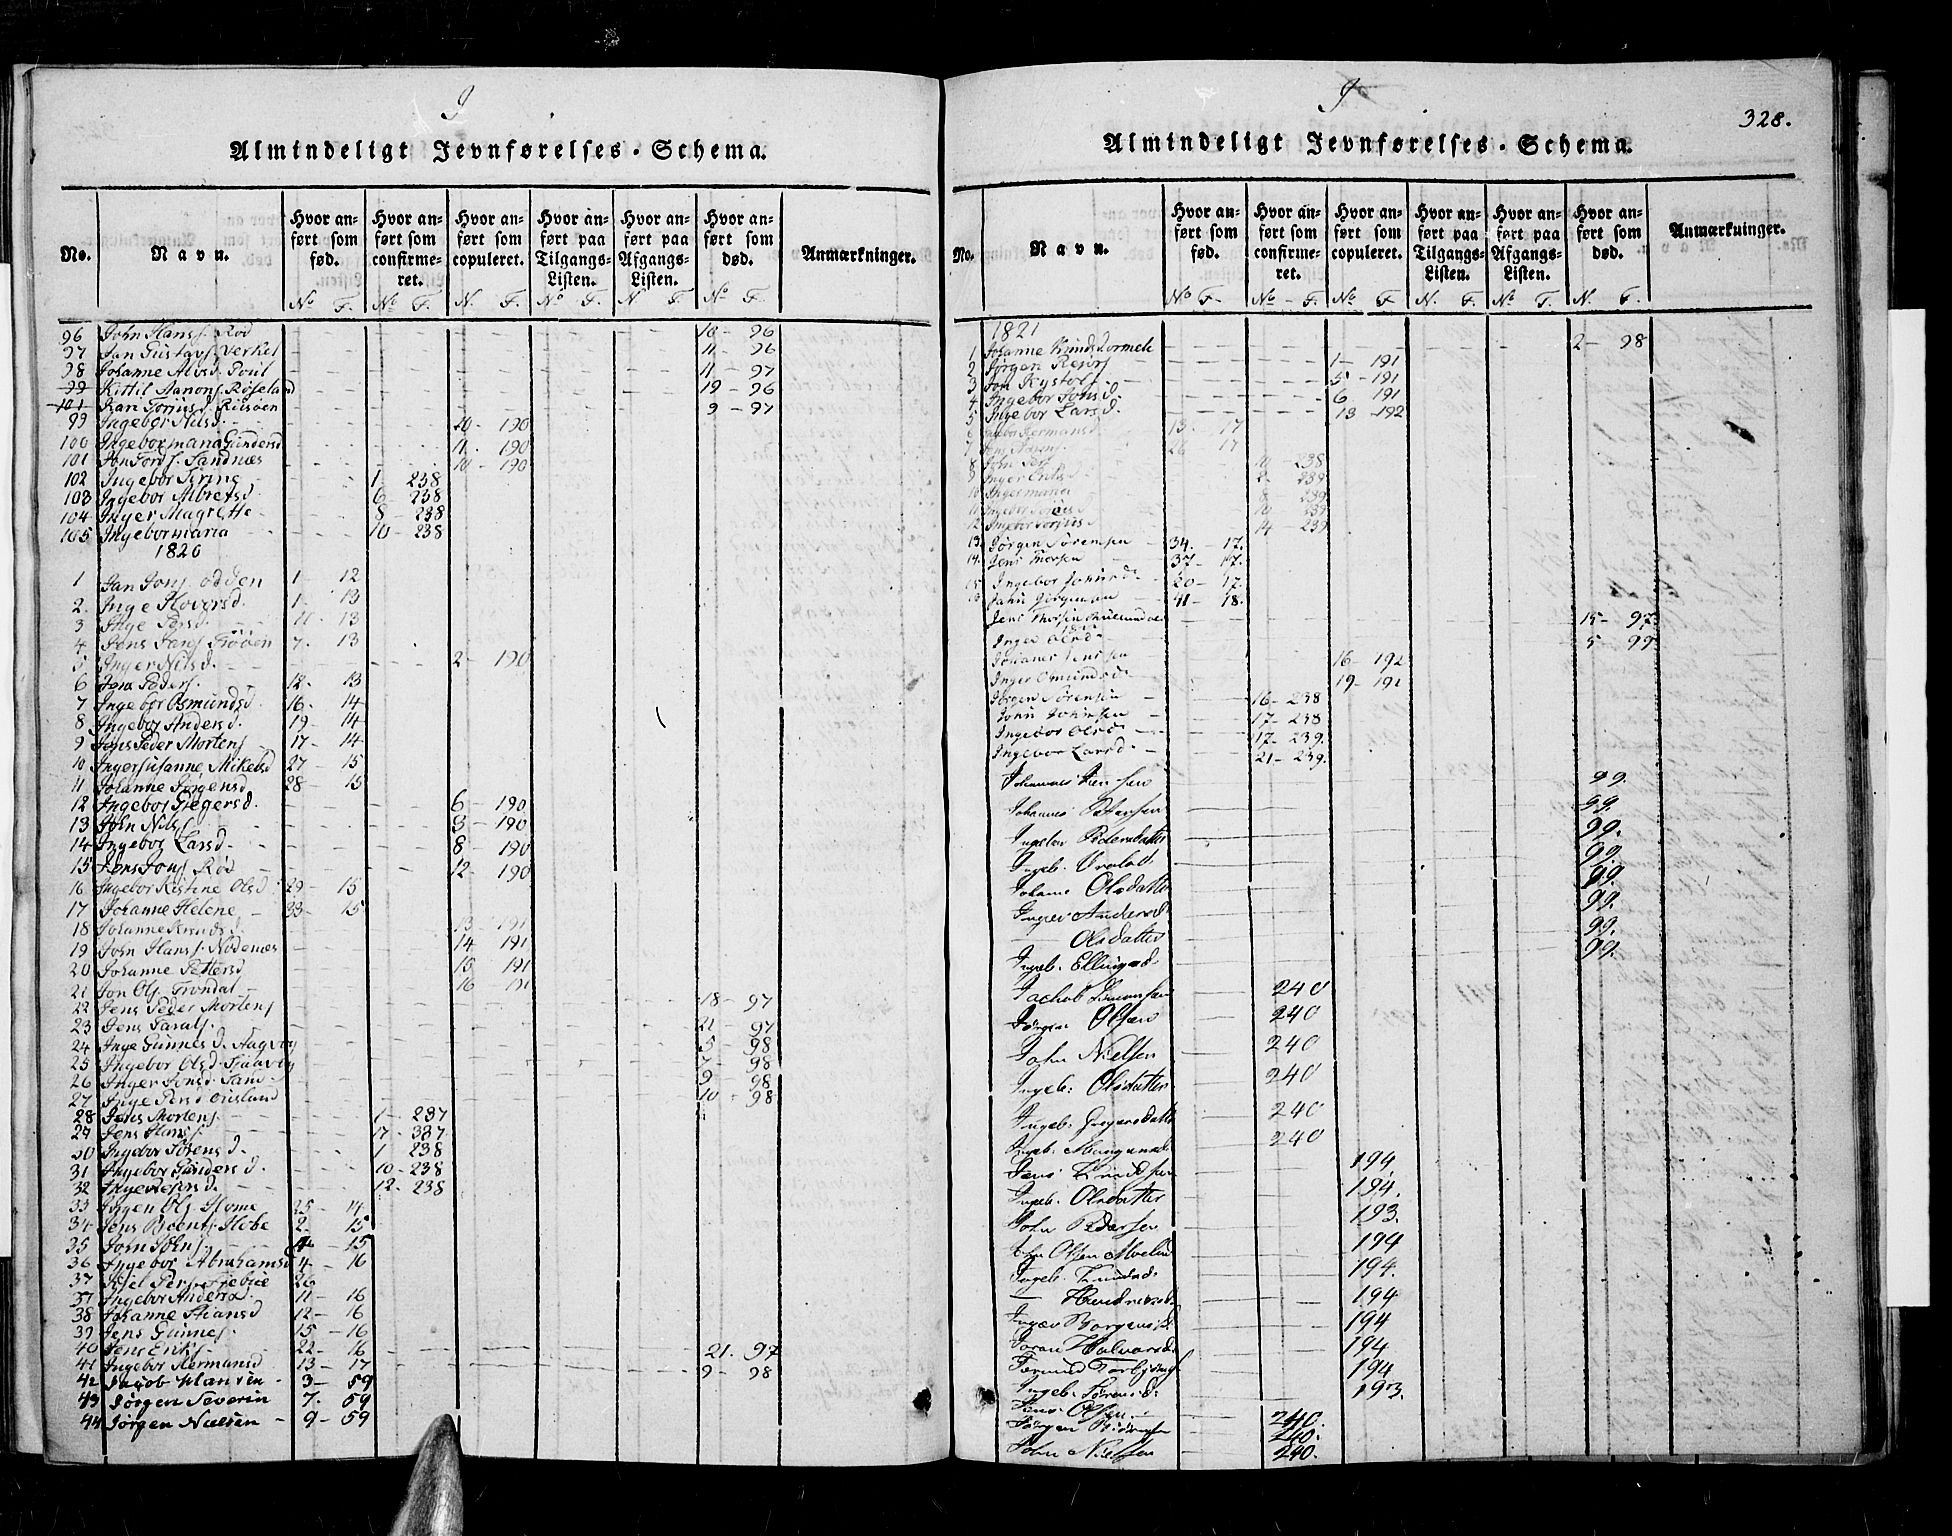 J
Almindeligt Jevnførelses-Schema.
No. Navn. Hvor anført som fød. Hvor anført som confirmeret. Hvor anført som copuleret. Hvor anført paa Tilgangs-Listen. Hvor anført paa Afgangs-Listen. Hvor anført som død. Anmærkninger.
No F. No F. N. F. No F. N F No F.
96 John Hans. Rød 10 - 96
97 Jan Gustavs. Verket 11 - 96
98 Johanne Alvsd. 11 - 97
99 Kittil Aanons. Røseland 19 - 96
101 9 - 97
99 Ingebor Nilsd. 10 - 190
100 Ingebormaria Gundersd 11 - 190
101 Jon Tords. Sandnæs 10 - 190
102 Ingebor Serine 1 - 238
103 Ingebor Albretsd. 6 - 238
104 Inger Magrethe 8 - 238
105 Ingebormaria 10 - 238
1820
1 Jan Jons. Odden 1 - 12
2. Inge Hoversd. 1 - 13
3 Inge Persd. 11 - 13
4 Jens Jans. 7. 13
5 Inger Nilsd. 2 - 190
6 Jens Peders. 12. 13
7 Ingebor Osmundsd 16. 14
8 Ingebor Andersd. 19 - 14
9 Jens Peder Mortens 17 - 14
10 Ingersusanne Mikelsd 27 - 15
11 Johanne Jørgensd 28 - 15
12 Ingebor Gregersd. 6 - 190
13 John Nils. 3 - 190
14 Ingebor Larsd. 8 - 190
15 Jens Jons. Rød 12 - 190
16 Ingebor Kistine Olsd 29 - 15
17 Johanne Helene 33 - 15
18 Johanne Knudsd. 13 - 191
19 John Hans. Nødenæs 14 191
20 Johanne Pettersd 15 191
21 Jon Ols. Trondal 16
22 Jens Peder Mortens 18 - 97
23 Jens Tarals. 21 - 97
24 Inge Gunnesd. 5 - 98
25 Ingebor Olsd. 7 - 98
26 Inger Jonsd. 9 98
27 Inge Persd. 10 - 98
28 Jens Mortens 1 - 237
29 Jens Hans. 17 - 337
30 Ingebor Sørensd. 1 238
31 Ingebor Gundersd. 10 - 238
32 Inge Persd. 12 - 238
33 Jørgen Ols. Home 25 - 14
34 Jens Beents. 2 - 15
35 John Johns. 4 - 15
36 Ingebor Abrahamsd 4 - 16
37 Kiel Pers. 26
37 Ingebor Andersd. 11 - 16
38 Johanne Stiansd 12 - 16
39 Jens Gunnes. 15 - 16
40 Jens Eriks. 22 - 16 21. 97
41 Ingebor Hermansd 13 - 17 9 - 98
42 Jacob Hansen 3 - 59
43 Jørgen Severin 7. 59
44 Jørgen Nielsen 9 - 59
J
328.
Almindeligt Jevnførelses-Schema.
No. Navn. Hvor anført som fød. Hvor anført som confirmeret. Hvor anført som copuleret. Hvor anført paa Tilgangs-Listen. Hvor anført paa Afgangs-Listen. Hvor anført som død. Anmærkninger.
No F. No F. No F. N. F. No F. N. F.
1821
1 Johanne Knudsd. 2 - 98
2 Jørgen Pers. 1 - 191
3 Jon 5 - 191
4 Ingebor Jonsd. 6 191
5 Ingebor Larsd. 13 - 192
6 Ingebor Hermansd. 13 - 17
7 Jens 26 17
8 John 10 - 238
9 Inger Eriksd. 2 - 239
10 Ingermaria 8 - 239
11 Ingebor 10 239
12 Ingebor 14 - 239
13. Jørgen Sørensen 34. - 17.
14. Jens 37 - 17.
15 Ingebor Johnsd. 20 - 17.
John Jørgensen 41 - 18.
Jens 15 - 97.
Inger Olsd. 5 - 99.
Johanes Jensen 16 - 192
Inger Osmundsd. 19 - 191
Jørgen Sørensen 16 - 238
John Johnsen 17 - 238
Ingebor Olsd. 17 - 239.
Ingebor Larsd. 21 - 239.
Johannes 99.
Johannes Petersen 99.
Ingebor Pedersdatter 99.
Ingeb. 99.
Johanne Olsdatter 99.
Inger Andersd. 99.
— Olsdatter 99.
Ingeb. Ellingsd. 99.
Jachob Simonsen 240
Jørgen Olsen 240
John Nielsen 240
Ingeb: Olsdatter 240
Ingeb. Gregersdatter 240
Ingeb. 240
Jens Knudsen 194
Ingeb. Olsdatter 194.
John Pedersen 193.
John Olsen 194
Ingeb. Knudsd. 194.
— 194
Inger 194
Joran Halvorsd. 194
194
Ingeb. Sørensd. 193.
Jens Olsen 240.
Jørgen 240.
John Nielsen 240.